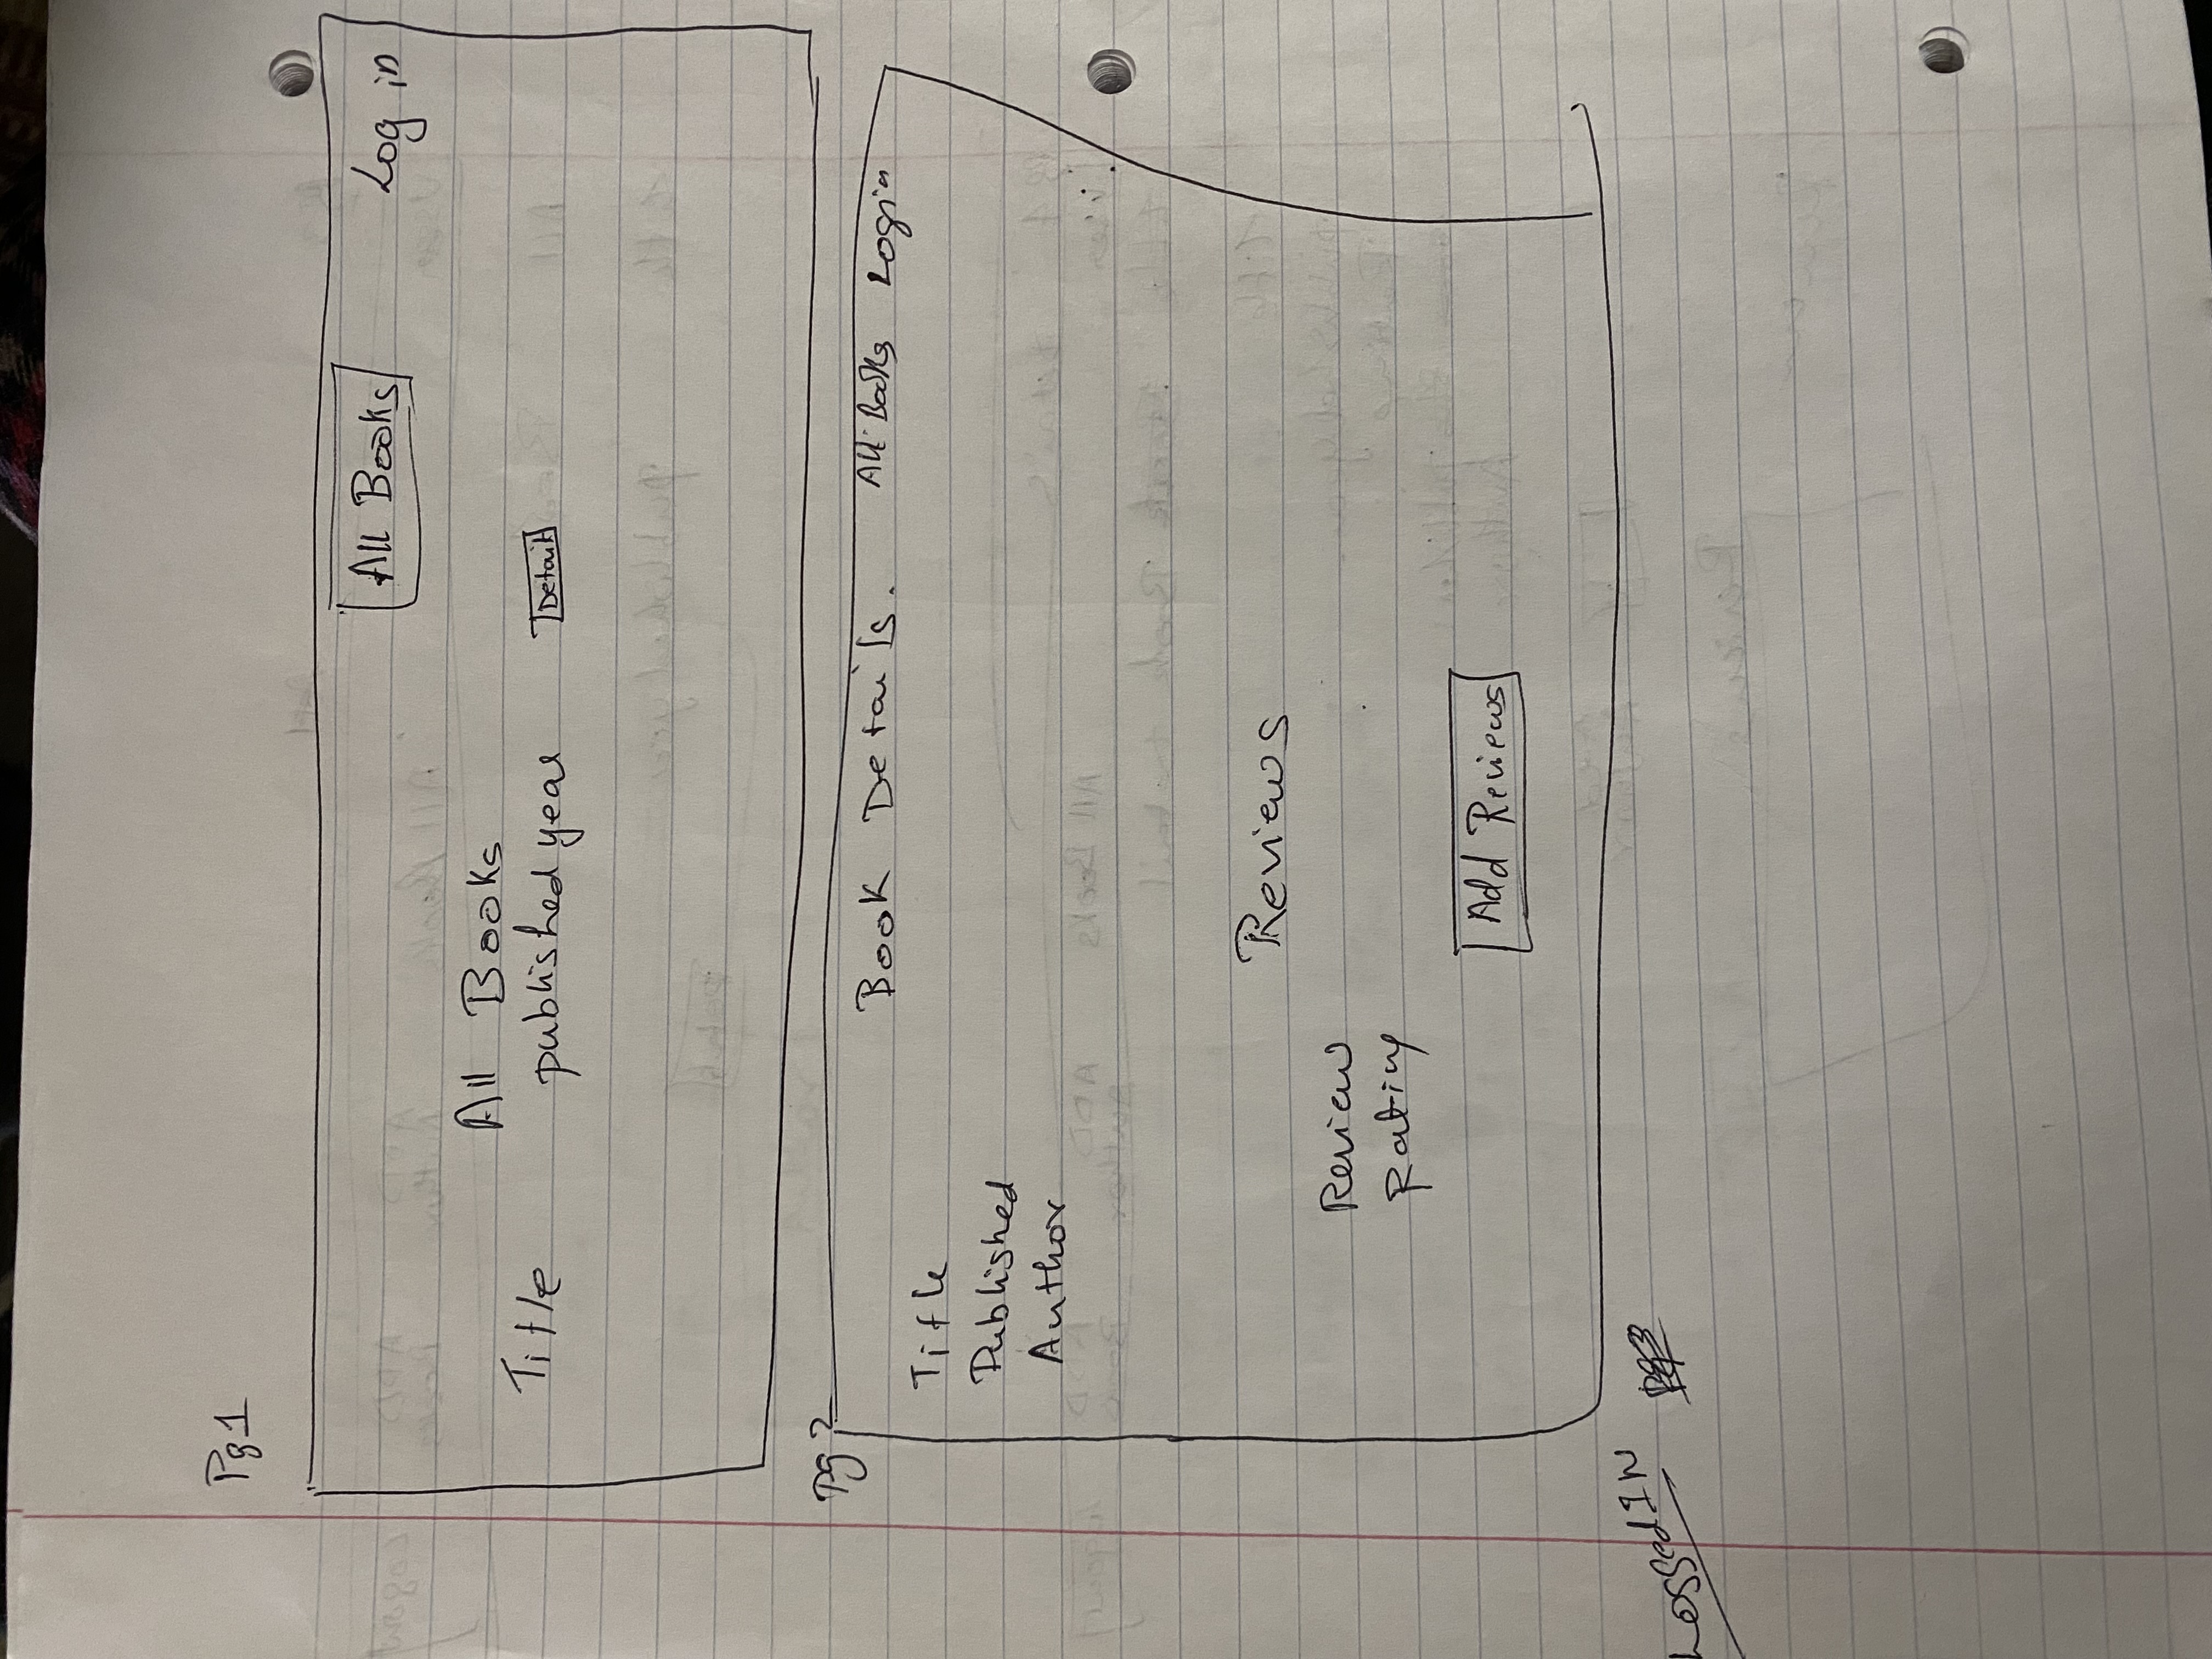 Pg 1
All Books Log in
All Books
Title published year Detail
Pg 2
Book Details. All Books Login
Title
Published
Author
Reviews
Review
Rating
Add Reviews
Logged IN